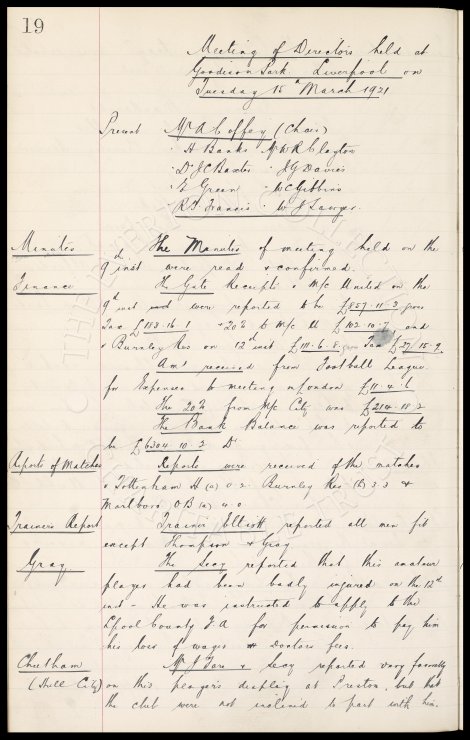 19
Meeting of Directors held at
Goodison Park Liverpool on
Tuesday 15th March 1921
Present Mr A Coffey (Chair)
" H Banks Mr W R Clayton
" Dr J C Baxter " J G Davies
" E Green " W C Gibbins
" R T Francis " W J Sawyer
Minutes The Minutes of meeting held on the
9th inst were read & confirmed.
Finance The Gate Receipts v M/c United on the
9th inst were reported to be £857.11.3 gross
Tax £183.16.1 + 20% to M/c U £102.10.7 and
v Burnley Res on 12th inst £111.6.8 gross Tax £27.15.9
Amt received from Football League
for Expenses to meeting in London £11.4.6
The 20% from M/c City was £214.18.2
The Bank Balance was reported to
be £6304.10.2 Dr
Reports of Matches Reports were received of the matches
v Tottenham H (a) 0.2. Burnley Res (h) 3.3 &
Marlboro O B (a) 4.0
Trainers Report Trainer Elliott reported all men fit
except Thompson & Gray
Gray The Secy reported that this amateur
player had been badly injured on the 12th
inst - He was instructed to apply to the
Lpool County F.A for permission to pay him
his loss of wages & Doctors fees.
Cheetham Mr J Fare & Secy reported very favorably
(Hull City) on this players display at Preston, but that
the club were not inclined to part with him.